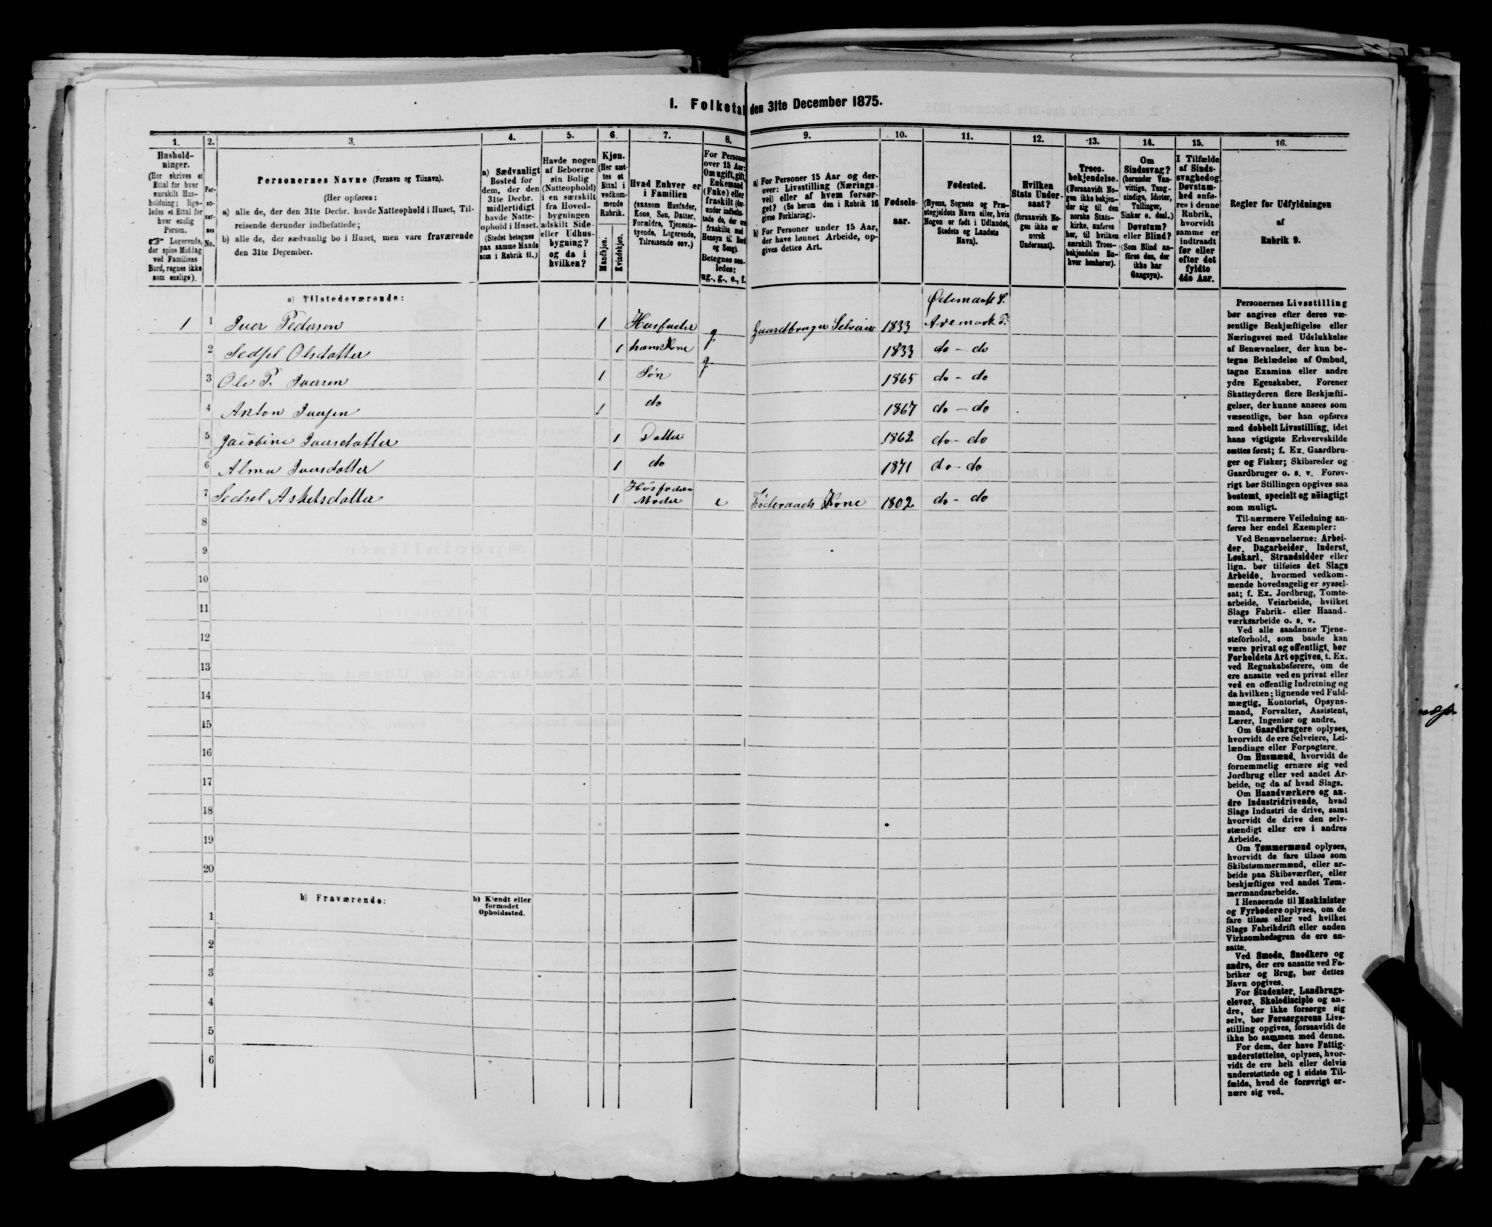 I. Folketal den 31te December 1875.
1.
Hushold-
ninger.
(Her skrives et
Ettal for hver
særskilt Hus-
holdning; lige-
ledes et Ettal for
hver enslig
Person.
Logerende,
der spise Middag
ved Familiens
Bord, regnes ikke
som enslige).
2.
Per-
so-
ner-
nes
No.
3.
Personernes Navne (Fornavn og Tilnavn).
(Her opføres:
a) alle de, der den 31te Decbr. havde Natteophold i Huset, Til-
reisende derunder indbefattede;
b) alle de, der sædvanlig bo i Huset, men vare fraværende
den 31te December.
4.
a) Sædvanligt
Bosted for
dem, der den
31te Decbr.
midlertidigt
havde Natte-
ophold i Huset.
(Stedet betegnes
paa samme Maade
som i Rubrik 11.)
5.
Havde nogen
af Beboerne
sin Bolig
(Natteophold)
i en særskilt
fra Hoved-
bygningen
adskilt Side-
eller Udhus-
bygning?
og da i
hvilken?
6.
Kjøn.
(Her sæt-
tes et
Ettal i
vedkom-
mende
Rubrik.
Mandkjøn.
Kvindekjøn.
7.
Hvad Enhver er
i Familien
(saasom Husfader,
Kone, Søn, Datter,
Forældre, Tjeneste-
tyende, Logerende,
Tilreisende osv.)
8.
For Personer
over 15 Aar:
Om ugift, gift,
Enkemand
(Enke) eller
fraskilt
Betegnes saa-
ledes:
ug., g., e., f.
9.
a) For Personer 15 Aar og der-
over: Livsstilling (Nærings-
vei) eller af hvem forsør-
get? (Se herom den i Rubrik 16
givne Forklaring).
b) For Personer under 15 Aar,
der have lønnet Arbeide, op-
gives dettes Art.
10.
Fødsels-
aar.
11.
Fødested.
(Byens, Sognets og Præ-
stegjeldets Navn eller, hvis
Nogen er født i Udlandet,
Stedets og Landets
Navn).
12.
Hvilken
Stats Under-
saat?
(forsaavidt No-
gen ikke er
norsk
Undersaat).
13.
Troes-
bekjendelse.
(Forsaavidt No-
gen ikke bekjen-
der sig til den
norske Stats-
kirke, anføres
her, til hvilken
særskilt Troes-
bekjendelse En-
hver henhører).
14.
Om
Sindssvag?
(herunder Van-
vittige, Tung-
sindige, Idioter,
Tullinger,
Sinker o. desl.)
Døvstum?
eller Blind?
(Som Blind an-
føres den, der
ikke har
Gangsyn).
15.
I Tilfælde
af Sinds-
svaghed og
Døvstum-
hed anfø-
res i denne
Rubrik,
hvorvidt
samme er
indtraadt
før eller
efter det
fyldte
4de Aar.
16.
Regler for Udfyldningen
af
Rubrik 9.
a) Tilstedeværende:
Ødemark S.
1 1 Iver Pederson 1 Husfader g Gaardbruger Selveier 1833 Aremark P.
2 Sedsel Olsdatter 1 hans Kone g 1833 do - do
3 Ole P. Iversen 1 Søn 1865 do - do
4 Anton Iversen 1 do 1867 do - do
5 Jacobine Iversdatter 1 Datter 1862 do - do
6 Alma Iversdatter 1 do 1871 do - do
7 Sedsel Askelsdatter 1 Husfaders Moder e Føderaads Kone 1802 do - do
8
9
10
11
12
13
14
15
16
17
18
19
20
b) Fraværende:
b) Kjendt eller
formodet
Opholdssted.
1
2
3
4
5
6
Personernes Livsstilling
bør angives efter deres væ-
sentlige Beskjæftigelse eller
Næringsvei med Udelukkelse
af Benævnelser, der kun be-
tegne Beklædelse af Ombud,
tagne Examina eller andre
ydre Egenskaber. Forener
Skatteyderen flere Beskjæfti-
gelser, der kunne ansees som
væsentlige, bør han opføres
med dobbelt Livsstilling, idet
hans vigtigste Erhvervskilde
sættes først; f. Ex. Gaardbru-
ger og Fisker; Skibsreder og
Gaardbruger o. s. v. Forøv-
rigt bør Stillingen opgives saa
bestemt, specielt og nøiagtigt
som muligt.
Til nærmere Veiledning an-
føres her endel Exempler:
Ved Benævnelserne: Arbei-
der, Dagarbeider, Inderst,
Løskarl, Strandsidder eller
lign. bør tilføies det Slags
Arbeide, hvormed vedkom-
mende hovedsagelig er syssel-
sat; f. Ex. Jordbrug, Tomte-
arbeide, Veiarbeide, hvilket
Slags Fabrik- eller Haand-
værksarbeide o. s. v.
Ved alle saadanne Tjene-
steforhold, som baade kan
være privat og offentligt, bør
Forholdets Art opgives, t. Ex.
ved Regnskabsførere, om de
ere ansatte ved en privat eller
ved en offentlig Indretning og
da hvilken; lignende ved Fuld-
mægtig, Kontorist, Opsyns-
mand, Forvalter, Assistent,
Lærer, Ingeniør og andre.
Om Gaardbrugere oplyses,
hvorvidt de ere Selveiere, Lei-
lændinge eller Forpagtere.
Om Husmænd, hvorvidt de
fornemmelig ernære sig ved
Jordbrug eller ved andet Ar-
beide, og da af hvad Slags.
Om Haandværkere og an-
dre Industridrivende, hvad
Slags Industri de drive, samt
hvorvidt de drive den selv-
stændigt eller ere i andres
Arbeide.
Om Tømmermænd oplyses,
hvorvidt de fare tilsøs som
Skibstømmermænd, eller ar-
beide paa Skibsværfter, eller
beskjæftiges ved andet Tøm-
mermandsarbeide.
I Henseende til Maskinister
og Fyrbødere oplyses, om de
fare tilsøs eller ved hvilket
Slags Fabrikdrift eller anden
Virksomhedsgren de ere an-
satte.
Ved Smede, Snedkere og
andre, der ere ansatte ved Fa-
briker og Brug, bør dettes
Navn opgives.
For Studenter, Landbrugs-
elever, Skoledisciple og an-
dre, der ikke forsørge sig
selv, bør Forsørgerens Livs-
stilling opgives, forsaavidt de
ikke bo sammen med denne.
For dem, der have Fattig-
understøttelse, oplyses, hvor-
vidt de ere helt eller delvis
understøttede og i sidste Til-
fælde, hvad de forøvrigt er-
nære sig ved.